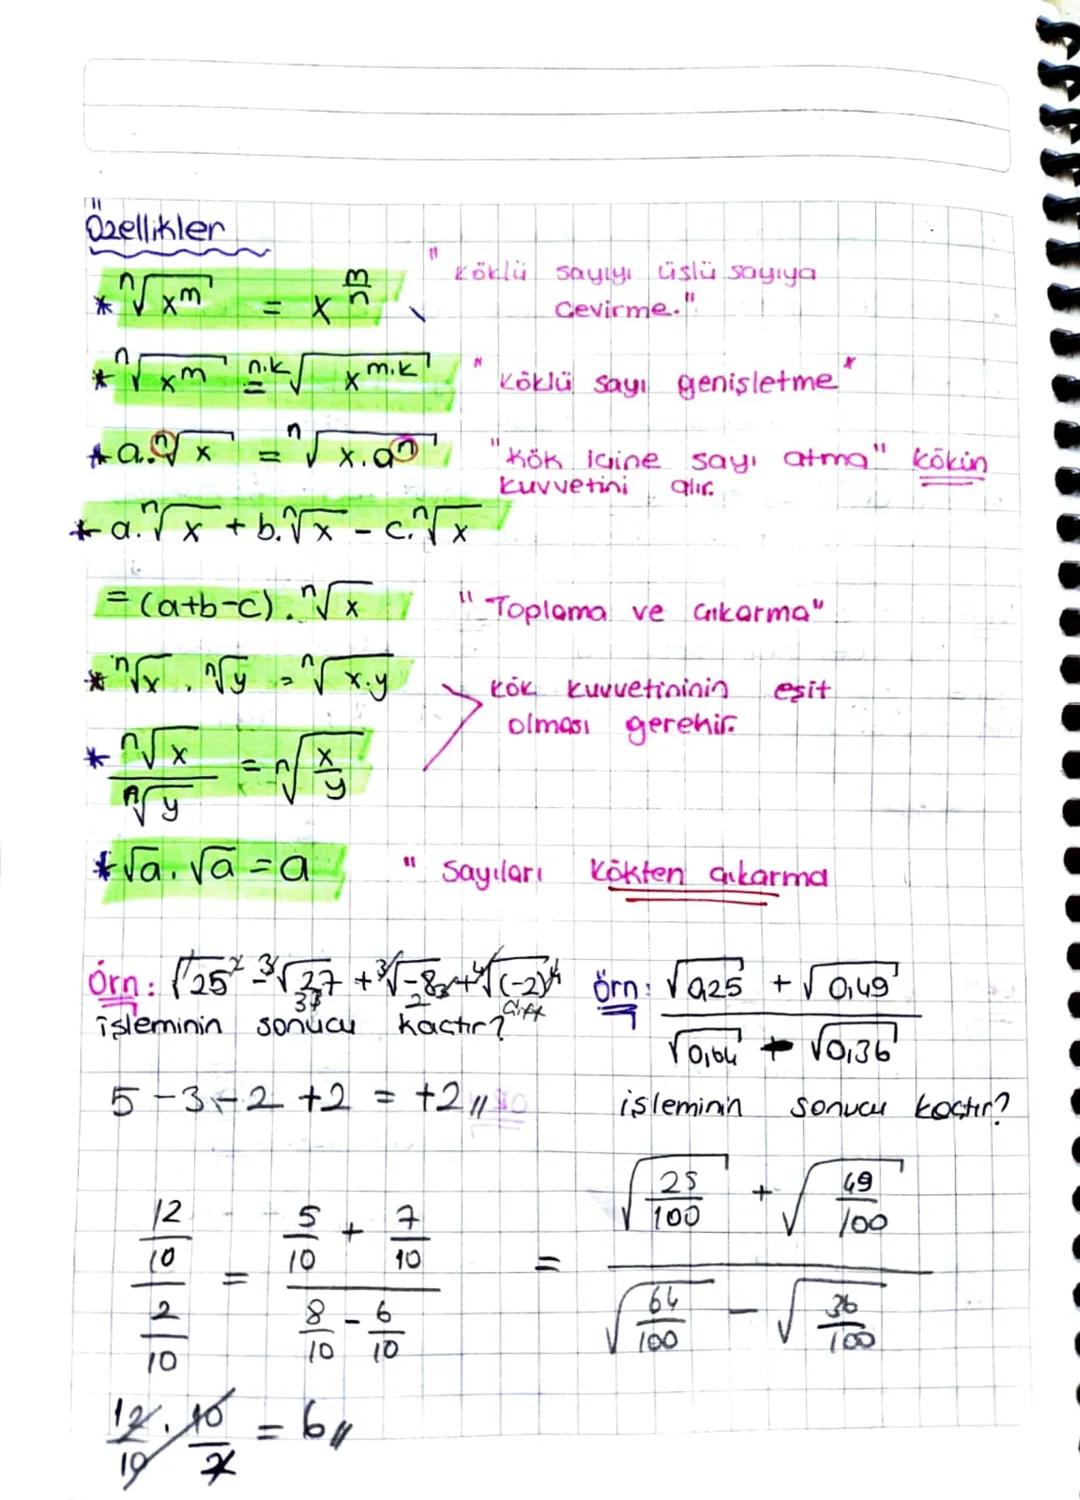 Özellikler
* ⁿ√xᵐ = x^(m/n) "Köklü sayıyı üslü sayıya
Çevirme."
* ⁿ√xᵐ = ⁿ·ᵏ√xᵐ·ᵏ "Köklü sayı genişletme"
* a.ⁿ√x = ⁿ√x.aⁿ "Kök içine sayı atma" kökün
kuvvetini alır.
* a.ⁿ√x + b.ⁿ√x - c.ⁿ√x
= (a+b-c).ⁿ√x "Toplama ve Çıkarma"
* ⁿ√x . ⁿ√y = ⁿ√x.y Kök kuvvetininin eşit
olması gerekir.
* ⁿ√x / ⁿ√y = ⁿ√(x/y)
* √a . √a = a " Sayıları Kökten çıkarma
Örn: √25 - ³√27 + ³√-8 + ⁴√(-2)⁴
işleminin sonucu kaçtır?
5 - 3 - 2 + 2 = +2//
Örn: (√0,25 + √0,49) / (√0,64 - √0,36)
işleminin sonucu kaçtır?
(12/10) / (2/10) = (5/10 + 7/10) / (8/10 - 6/10) = (√(25/100) + √(49/100)) / (√(64/100) - √(36/100))
12/10 . 10/2 = 6//